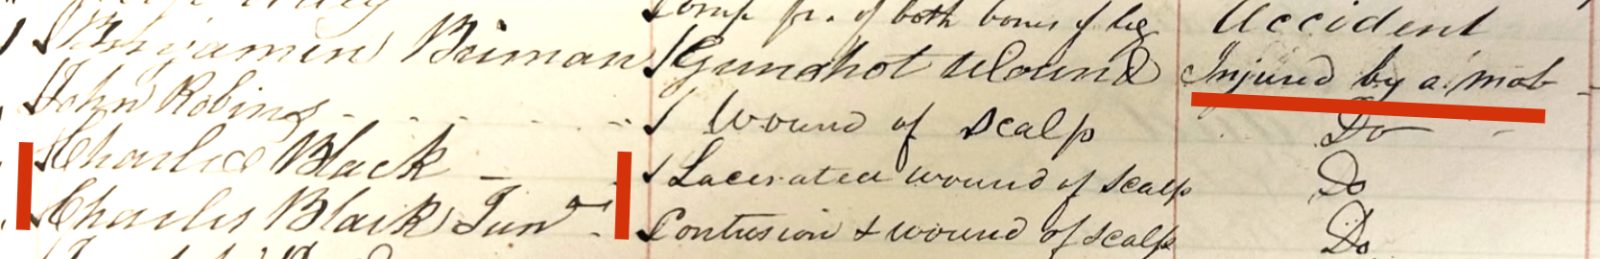 Comp fr. of both bones of leg Accident
Benjamin Briman Gunshot Wound Injured by a mob
John Robins Wound of Scalp Do
Charles Black Lacerated wound of scalp Do
Charles Black Junr Contusion & wound of scalp Do